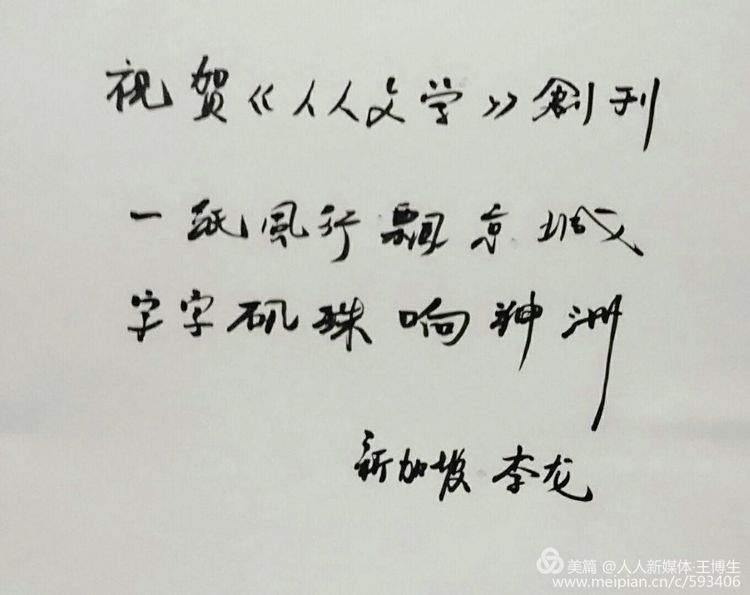 祝贺《人人文学》創刊
一纸風行飄京城
字字矶珠响神洲
新加坡 李龙
美篇 @人人新媒体·王博生
www.meipian.cn/c/593406